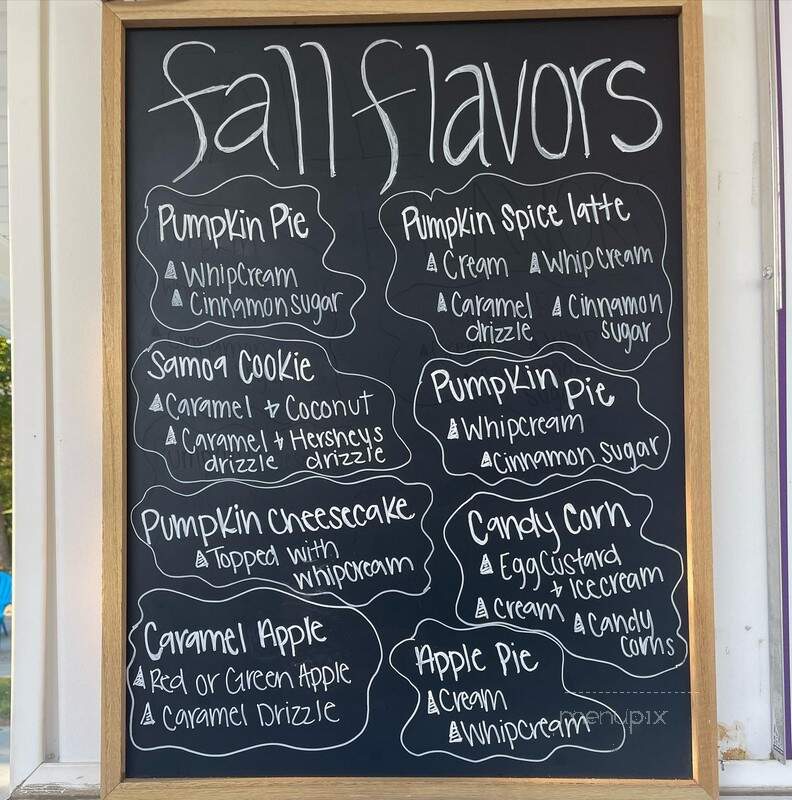 fall flavors
Pumpkin Pie
Whipcream
Cinnamon sugar
Pumpkin spice latte
Cream Whip cream
Caramel drizzle Cinnamon sugar
Samoa Cookie
Caramel + Coconut
Caramel drizzle + Hersheys drizzle
Pumpkin Pie
Whipcream
Cinnamon sugar
Pumpkin Cheesecake
Topped with
whipcream
Candy Corn
Egg Custard
+ Icecream
Cream Candy corns
Caramel Apple
Red or Green Apple
Caramel Drizzle
Apple Pie
Cream
Whipcream
menupix